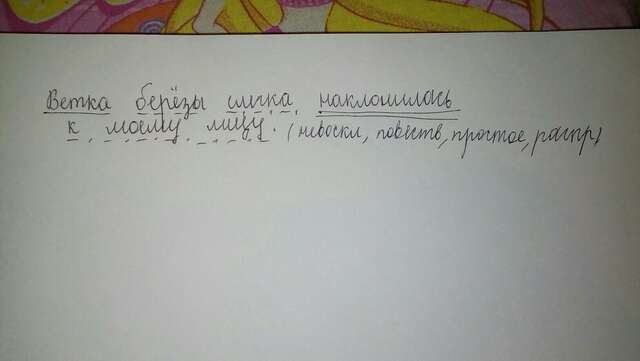 Ветка берёзы слегка наклонилась
к моему лицу. (невоскл, повеств, простое, распр)